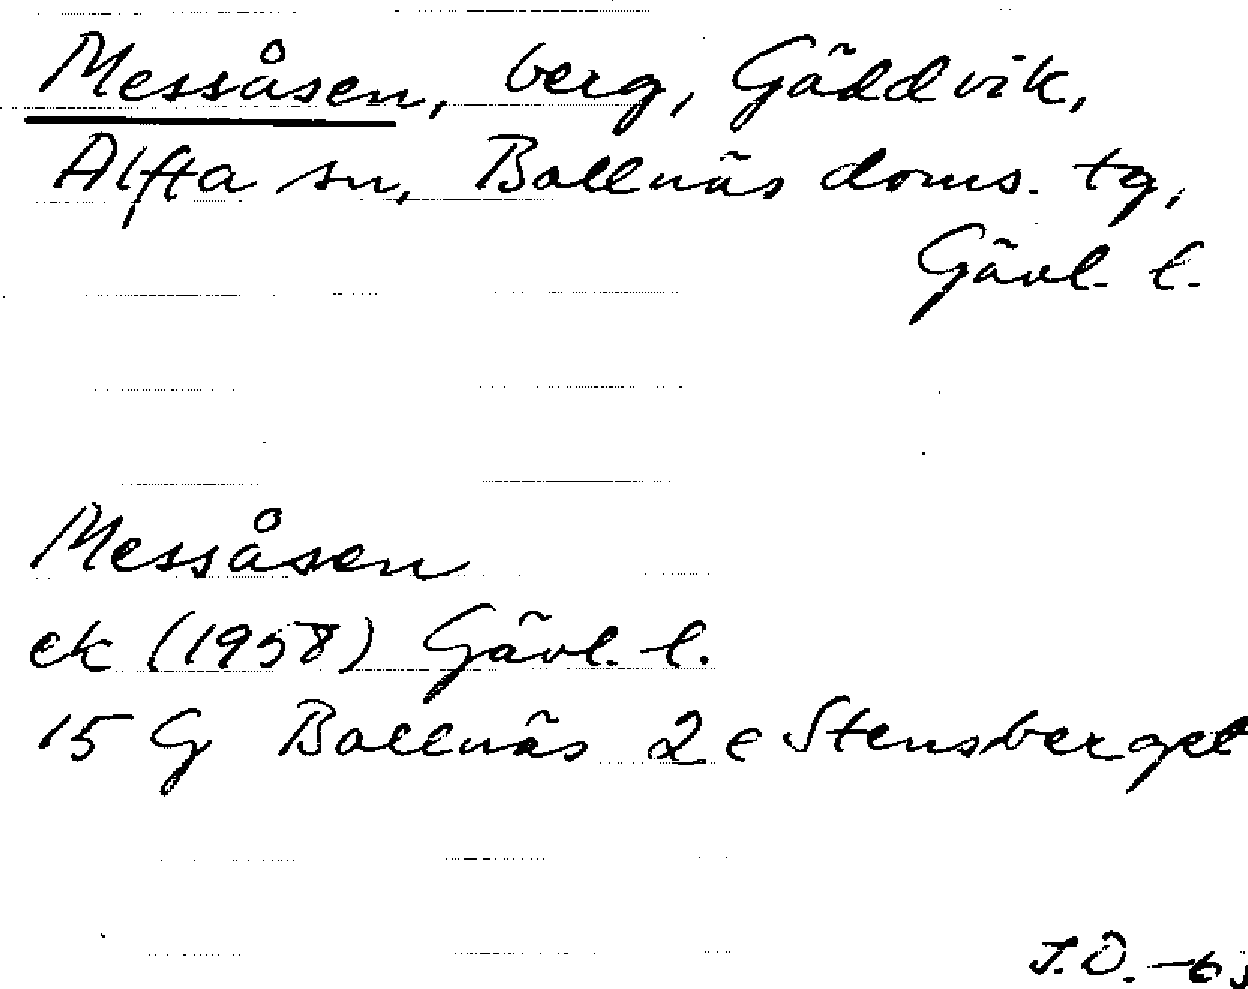 Messåsen, berg, Gäddvik,
Alfta sn, Bollnäs doms. tg,
Gävl. l.
Messåsen
ek (1958) Gävl. l.
15 G Bollnäs 2 c Stensberget
J.Ö.